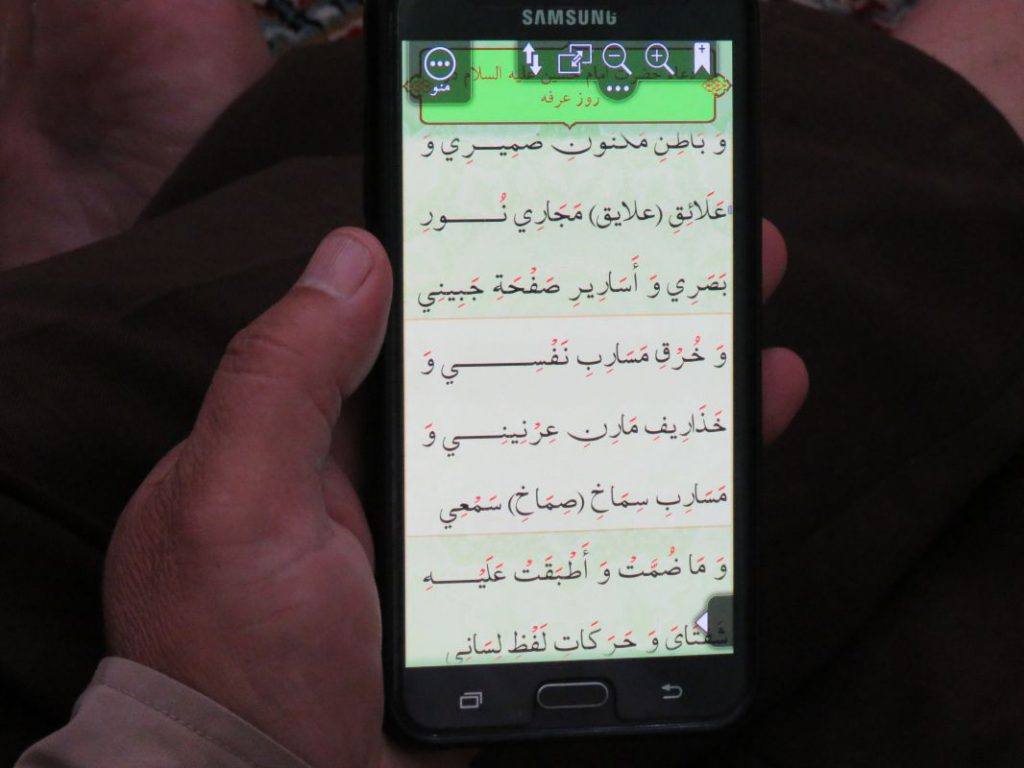 SAMSUNG
دعای حضرت امام حسین علیه السلام در
روز عرفه
منو
وَ بَاطِنِ مَكْنُونِ ضَمِيـــرِي وَ
عَلَائِقِ (علايق) مَجَارِي نُـــــورِ
بَصَرِي وَ أَسَارِيرِ صَفْحَةِ جَبِينِي
وَ خُرْقِ مَسَارِبِ نَفْسِــــــــي وَ
خَذَارِيفِ مَارِنِ عِرْنِينِـــي وَ
مَسَارِبِ سِمَاخِ (صِمَاخِ) سَمْعِي
وَ مَا ضُمَّتْ وَ أَطْبَقَتْ عَلَيْـــــهِ
شَفَتَايَ وَ حَرَكَاتِ لَفْظِ لِسَانِي